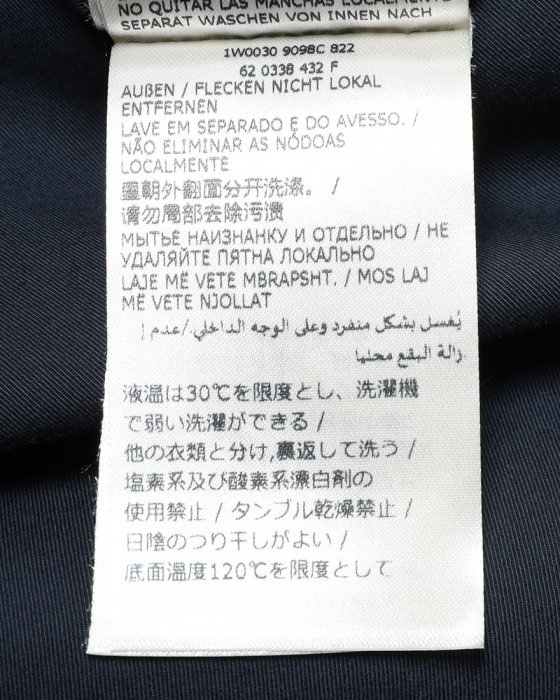 NO QUITAR LAS MANCHAS LOCALMENTE
SEPARAT WASCHEN VON INNEN NACH
1W0030 9098C 822
62 0338 432 F
AUßEN / FLECKEN NICHT LOKAL
ENTFERNEN
LAVE EM SEPARADO E DO AVESSO. /
NÃO ELIMINAR AS NÓDOAS
LOCALMENTE
朝外翻面分开洗涤。 /
请勿局部去除污渍
МЫТЬЁ НАИЗНАНКУ И ОТДЕЛЬНО / НЕ
УДАЛЯЙТЕ ПЯТНА ЛОКАЛЬНО
LAJE MË VETE MBRAPSHT. / MOS LAJ
MË VETE NJOLLAT
يُغسل بشكل منفرد وعلى الوجه الداخلي./عدم إ
زالة البقع محليا
液温は30℃を限度とし、洗濯機
で弱い洗濯ができる /
他の衣類と分け,裏返して洗う /
塩素系及び酸素系漂白剤の
使用禁止 / タンブル乾燥禁止 /
日陰のつり干しがよい /
底面温度120℃を限度として